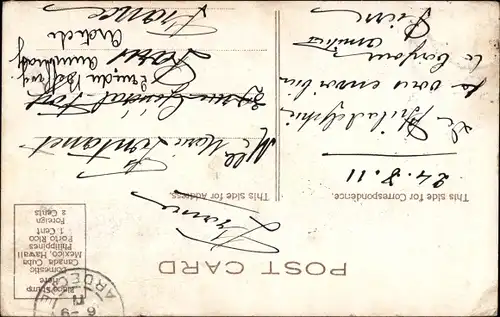 POST CARD
Place Stamp
Here
Domestic
Canada Cuba
Mexico, Hawaii
Philippines
Porto Rico
1 Cent
Foreign
2 Cents
ARDECHE
This side for Correspondence.
This side for Address.
24.8.11
De Philadelphie
je vous envoi bien
le bonjour
amitiés
Pierre
France
Mlle Marie Fontanet
Général
Paris
Ardèche
France